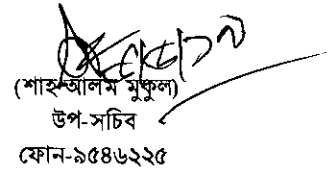 (শাহ আলম মুকুল)
উপ-সচিব
ফোন-৯৫৪৬২২৫